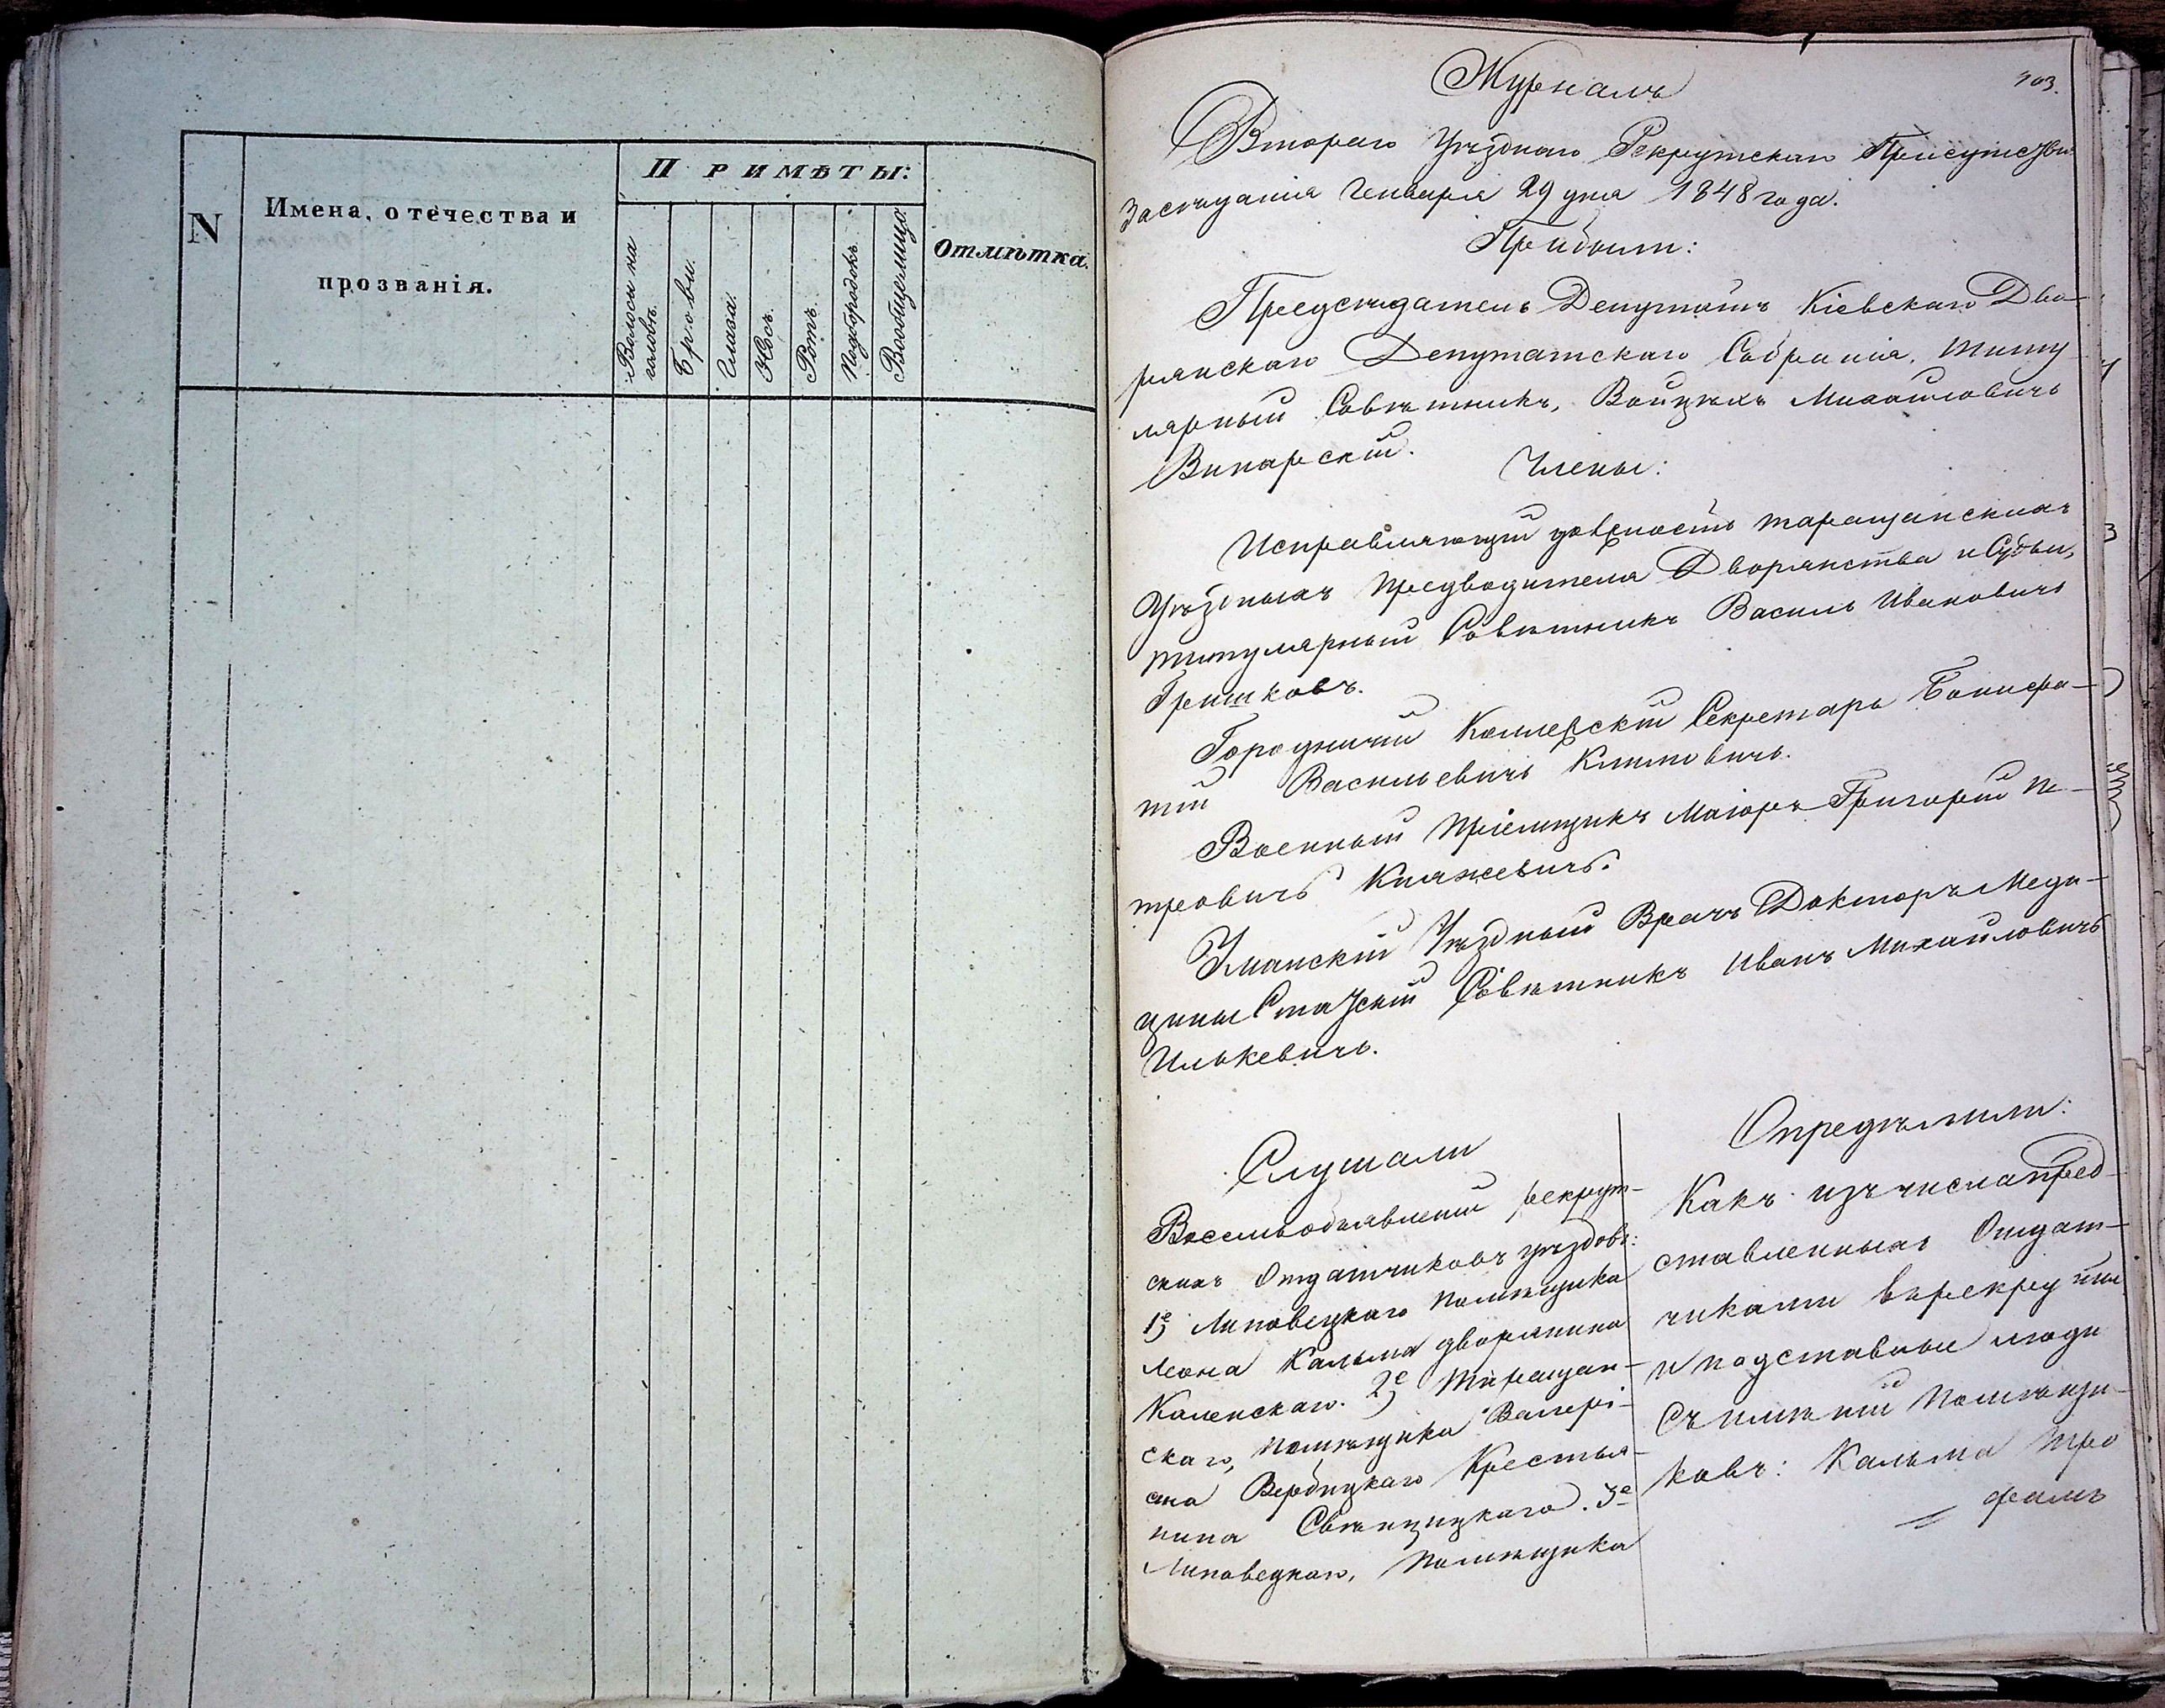 N
Имена, отечества и
прозванія.
ПРИМѢТЫ:
Волосы на
головѣ.
Брови.
Глаза.
Носъ.
Ротъ.
Подбородокъ.
Вообще лицо.
Отмѣтка.
Журналъ
Втораго Уѣзднаго Рекрутскаго Присутствія
Засѣданія Генваря 29 дня 1848 года.
Прибыли:
Предсѣдатель Депутатъ Кіевскаго Дво-
рянскаго Депутатскаго Собранія, титу
лярный Совѣтникъ, Войцѣхъ Михайловичъ
Випарскій.
Члены:
Исправляющій должность таращанскихъ
Уѣздныхъ Предводителя Дворянства и Судьи,
титулярный Совѣтникъ Василь Ивановичъ
Гришковъ.
Городничій Коллежскій Секретарь Бонифа-
тій Васильевичъ Климовичъ.
Военный Пріемщикъ Маіоръ Григорій Пе-
тровичъ Княжевичъ.
Уманскій Уѣздный Врачъ Докторъ Меди-
цины Статскій Совѣтникъ Иванъ Михайловичъ
Илькевичъ.
Слушали
объявленій рекрут-
скихъ Отдатчиковъ уѣздовъ:
1е Липовецкаго помѣщика
Леона Кальма дворянина
Каленскаго. 2е Таращан-
скаго, помѣщика Валері-
ана Вербицкаго Крестья-
нина Свѣнцицкаго. 3е
Липовецкаго, помѣщика
Опредѣлили:
Какъ изъ числа пред-
ставленныхъ Отдат-
чиками въ рекруты
и подставные люди
съ имѣній помѣщи-
ковъ: Кальма Тро
фимъ